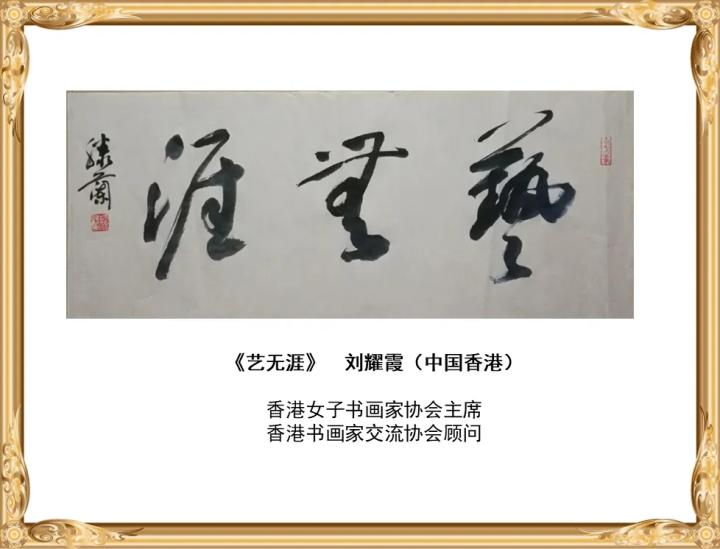 藝無涯
滕蘭
《艺无涯》 刘耀霞（中国香港）
香港女子书画家协会主席
香港书画家交流协会顾问